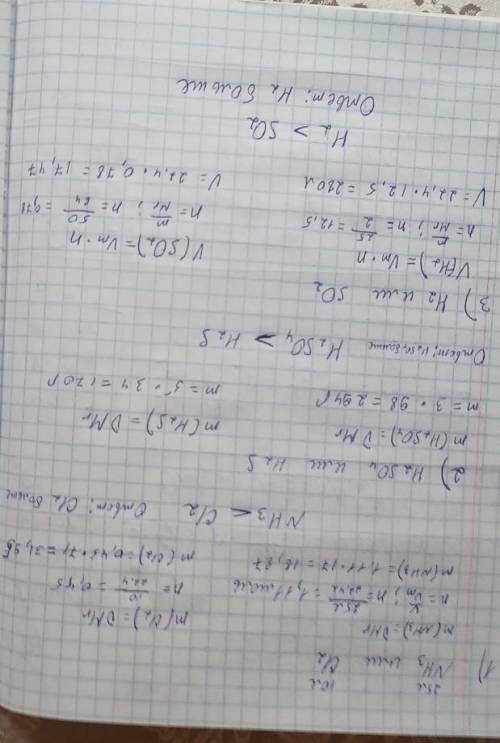 25л 10л
1) NH₃ или Cl₂
m(NH₃) = DMr
n = V/Vm ; n = 25л/22,4 = 1,11 моль
m(NH₃) = 1,11 · 17 = 18,87
m(Cl₂) = DMr
n = 10/22,4 = 0,45
m(Cl₂) = 0,45 · 71 = 31,95
NH₃ < Cl₂ Ответ: Cl₂ больше
2) H₂SO₄ или H₂S
m(H₂SO₄) = DMr
m = 3 · 98 = 294г
m(H₂S) = DMr
m = 5 · 34 = 170г
Ответ: H₂SO₄ больше H₂SO₄ > H₂S
3) H₂ или SO₂
V(H₂) = Vm · n
n = m/Mr ; n = 25/2 = 12,5
V = 22,4 · 12,5 = 280л
V(SO₂) = Vm · n
n = m/Mr ; n = 50/64 = 0,78
V = 22,4 · 0,78 = 17,47
H₂ > SO₂
Ответ: H₂ больше